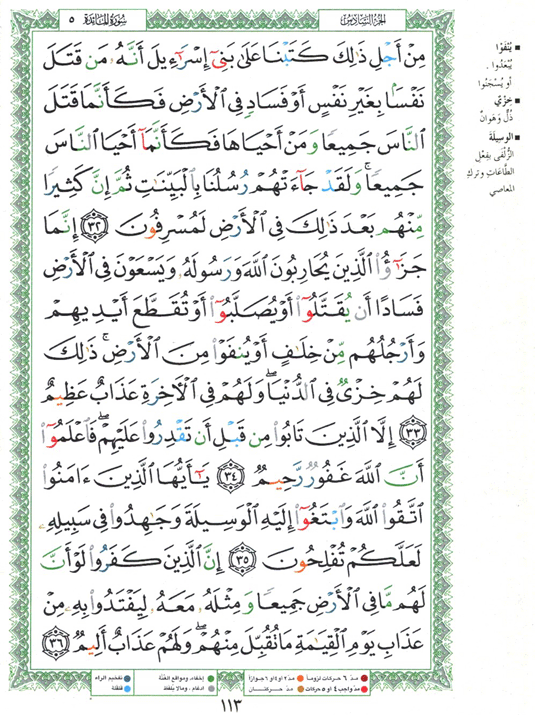 الجزء السادس
سورة المائدة ٥
مِنْ أَجْلِ ذَٰلِكَ كَتَبْنَا عَلَىٰ بَنِىٓ إِسْرَٰٓءِيلَ أَنَّهُۥ مَن قَتَلَ
نَفْسًۢا بِغَيْرِ نَفْسٍ أَوْ فَسَادٍ فِى ٱلْأَرْضِ فَكَأَنَّمَا قَتَلَ
ٱلنَّاسَ جَمِيعًا وَمَنْ أَحْيَاهَا فَكَأَنَّمَآ أَحْيَا ٱلنَّاسَ
جَمِيعًا ۚ وَلَقَدْ جَآءَتْهُمْ رُسُلُنَا بِٱلْبَيِّنَٰتِ ثُمَّ إِنَّ كَثِيرًا
مِّنْهُم بَعْدَ ذَٰلِكَ فِى ٱلْأَرْضِ لَمُسْرِفُونَ ٣٢ إِنَّمَا
جَزَٰٓؤُا۟ ٱلَّذِينَ يُحَارِبُونَ ٱللَّهَ وَرَسُولَهُۥ وَيَسْعَوْنَ فِى ٱلْأَرْضِ
فَسَادًا أَن يُقَتَّلُوٓا۟ أَوْ يُصَلَّبُوٓا۟ أَوْ تُقَطَّعَ أَيْدِيهِمْ
وَأَرْجُلُهُم مِّنْ خِلَٰفٍ أَوْ يُنفَوْا۟ مِنَ ٱلْأَرْضِ ۚ ذَٰلِكَ
لَهُمْ خِزْىٌ فِى ٱلدُّنْيَا ۖ وَلَهُمْ فِى ٱلْءَاخِرَةِ عَذَابٌ عَظِيمٌ
٣٣ إِلَّا ٱلَّذِينَ تَابُوا۟ مِن قَبْلِ أَن تَقْدِرُوا۟ عَلَيْهِمْ ۖ فَٱعْلَمُوٓا۟
أَنَّ ٱللَّهَ غَفُورٌ رَّحِيمٌ ٣٤ يَٰٓأَيُّهَا ٱلَّذِينَ ءَامَنُوا۟
ٱتَّقُوا۟ ٱللَّهَ وَٱبْتَغُوٓا۟ إِلَيْهِ ٱلْوَسِيلَةَ وَجَٰهِدُوا۟ فِى سَبِيلِهِۦ
لَعَلَّكُمْ تُفْلِحُونَ ٣٥ إِنَّ ٱلَّذِينَ كَفَرُوا۟ لَوْ أَنَّ
لَهُم مَّا فِى ٱلْأَرْضِ جَمِيعًا وَمِثْلَهُۥ مَعَهُۥ لِيَفْتَدُوا۟ بِهِۦ مِنْ
عَذَابِ يَوْمِ ٱلْقِيَٰمَةِ مَا تُقُبِّلَ مِنْهُمْ ۖ وَلَهُمْ عَذَابٌ أَلِيمٌ ٣٦
■ يُنْفَوْا
يُبْعَدُوا .
أو يُسْجَنُوا
■ خِزْيٌ
ذُلٌّ وَهَوانٌ
■ الوسيلَة
الزُّلْفَى بِفِعْلِ
الطَّاعَاتِ وتَركِ
المَعاصي
مدّ ٦ حركات لزوماً مدّ ٢ أو ٤ أو ٦ جوازاً إخفاء، ومواقع الغنّة تفخيم الراء
مدّ واجب ٤ أو ٥ حركات مدّ حركتان ادغام ، ومالا يُلفظ قلقلة
١١٣